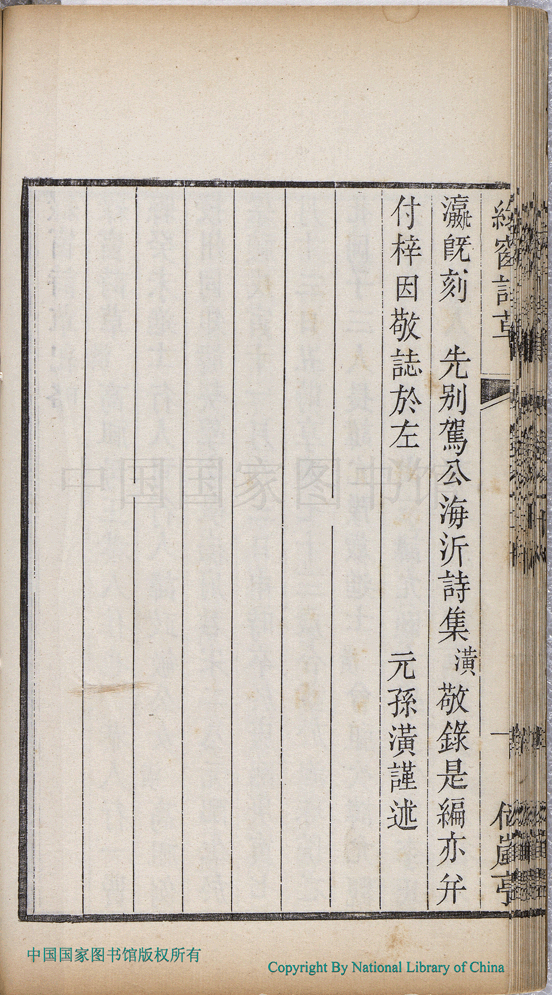 瀛既刻　先别駕公海沂詩集潢敬錄是編亦并
付梓因敬誌於左
元孫潢謹述
中国国家图书馆
中国国家图书馆版权所有
Copyright By National Library of China